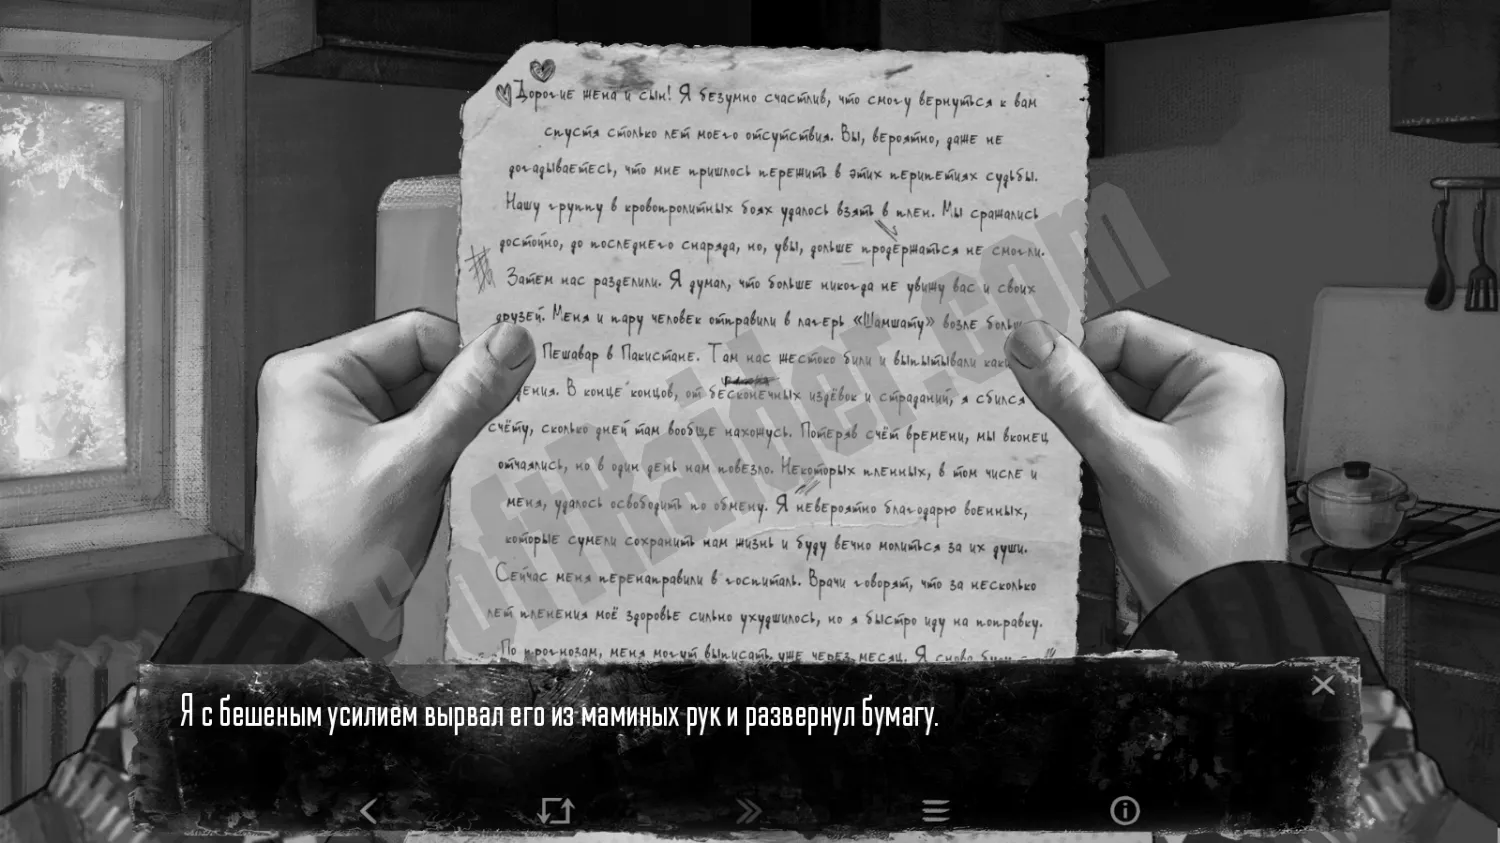 Дорогие жена и сын! Я безумно счастлив, что смогу вернуться к вам
спустя столько лет моего отсутствия. Вы, вероятно, даже не
догадываетесь, что мне пришлось пережить в этих перипетиях судьбы.
Нашу группу в кровопролитных боях удалось взять в плен. Мы сражались
достойно, до последнего снаряда, но, увы, дольше продержаться не смогли.
Затем нас разделили. Я думал, что больше никогда не увижу вас и своих
друзей. Меня и пару человек отправили в лагерь «Шамшату» возле
Пешавар в Пакистане. Там нас жестоко били и выпытывали
В конце концов, от бесконечных издёвок и страданий, я сбился
счёту, сколько дней там вообще нахожусь. Потеряв счёт времени, мы вконец
отчаялись, но в один день нам повезло. Некоторых пленных, в том числе и
меня, удалось освободить по обмену. Я невероятно благодарю военных,
которые сумели сохранить нам жизнь и буду вечно молиться за их души.
Сейчас меня перенаправили в госпиталь. Врачи говорят, что за несколько
лет пленения моё здоровье сильно ухудшилось, но я быстро иду на поправку.
По прогнозам, меня могут выписать уже через месяц. Я снова
Sofiraider.com
Я с бешеным усилием вырвал его из маминых рук и развернул бумагу.